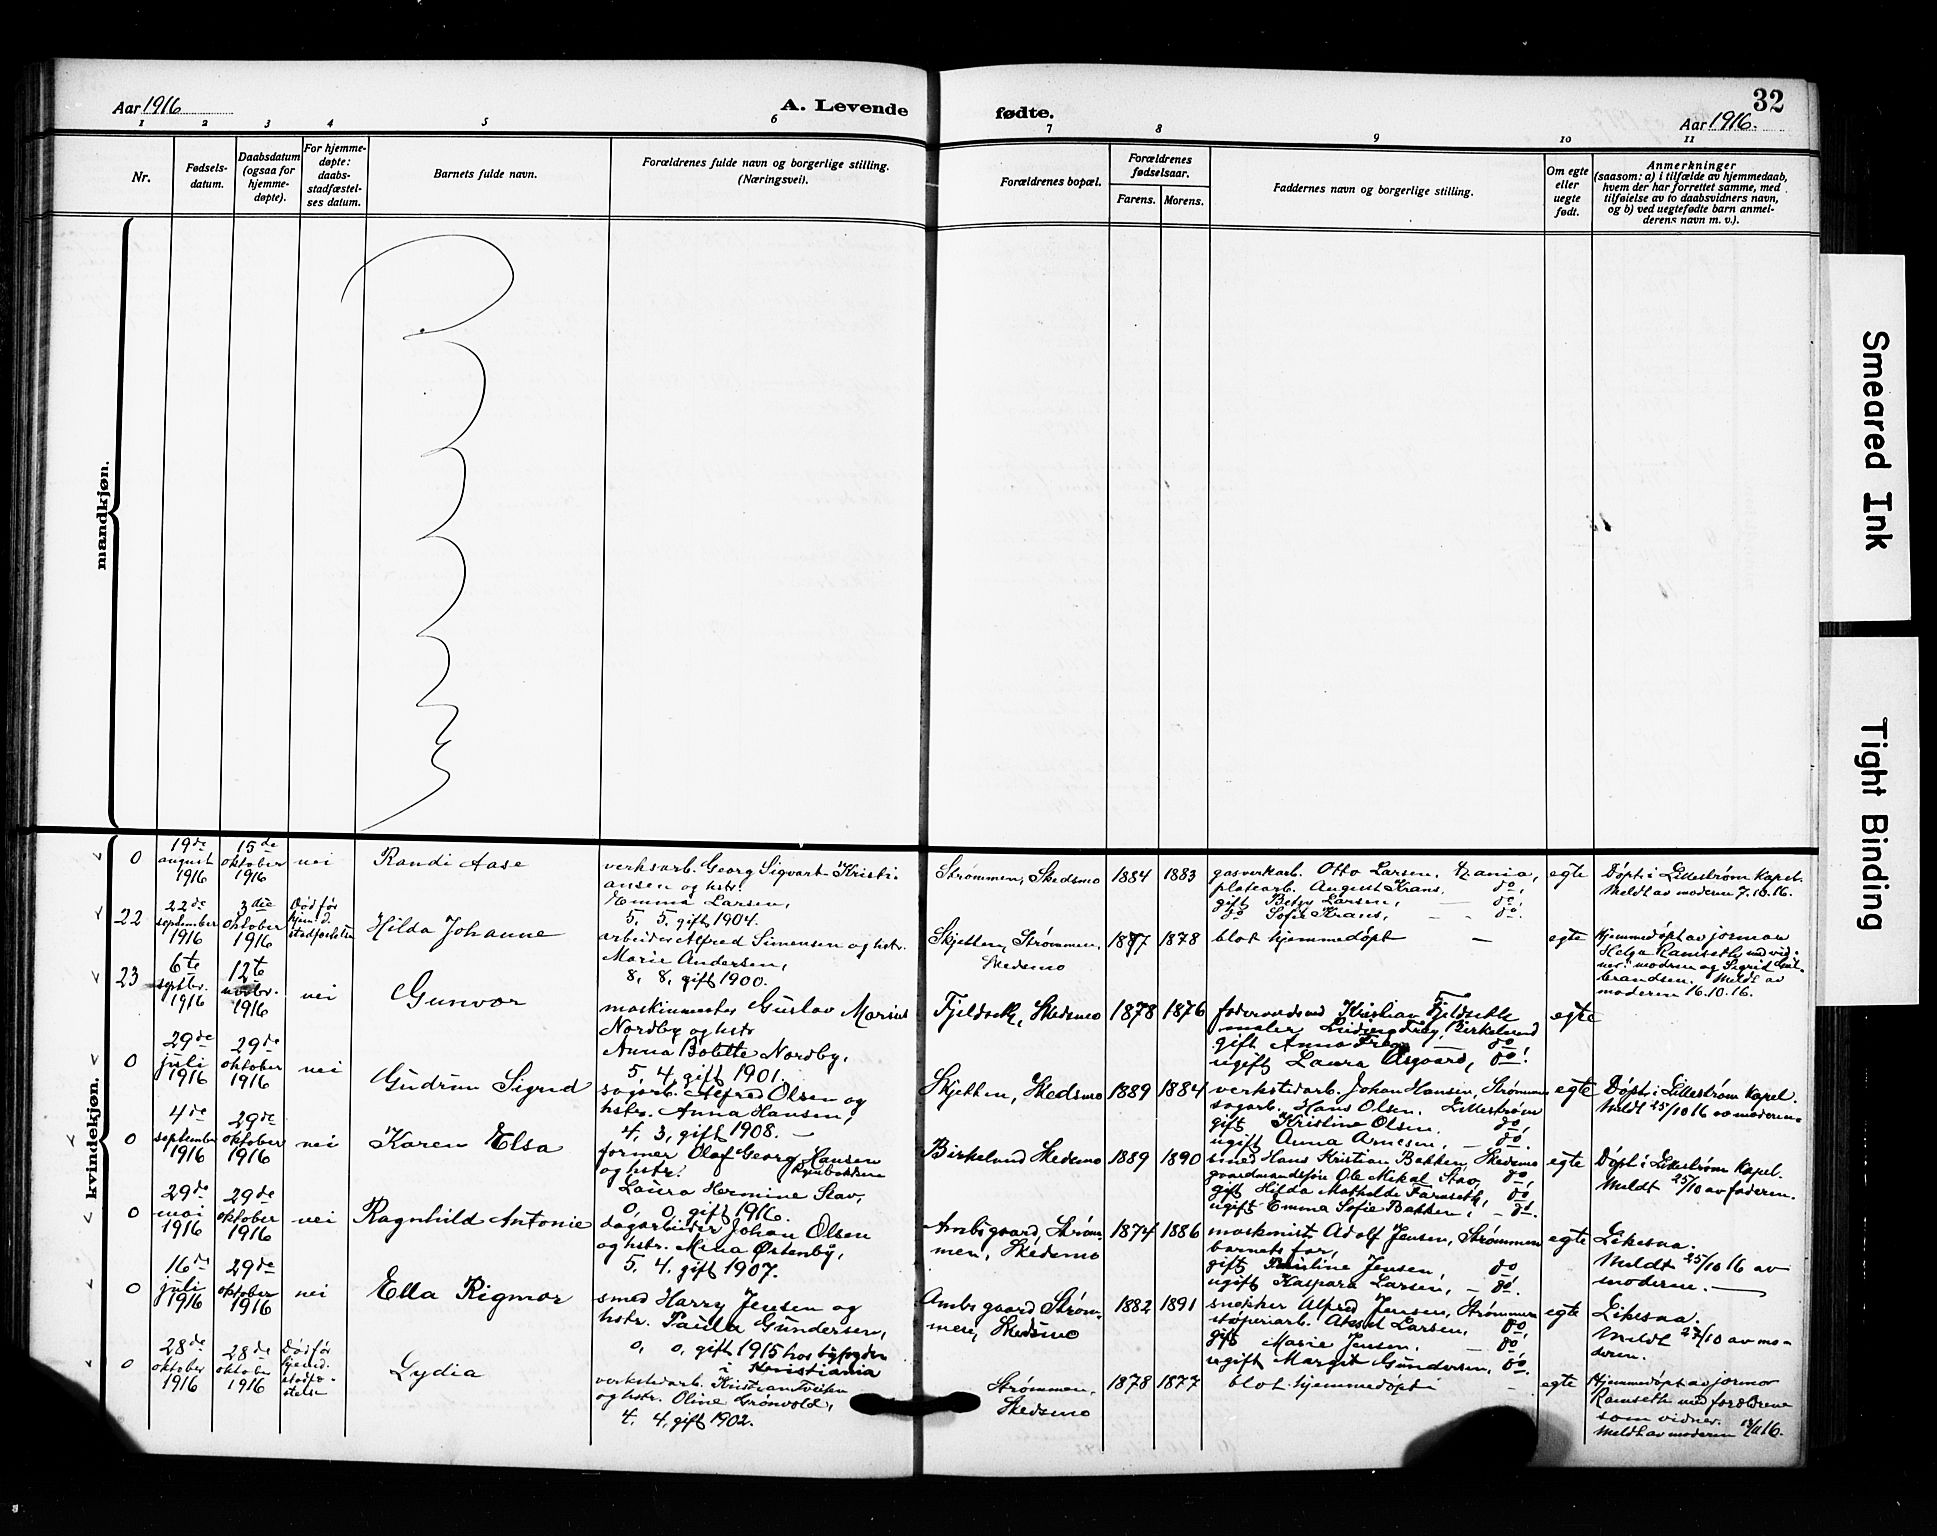 Aar 1916
A. Levende
fødte.
32
Aar 1916.
1 2 3 4 5 6 7 8 9 10 11
Nr.
Fødsels-
datum.
Daabsdatum
(ogsaa for
hjemme-
døpte).
For hjemme-
døpte:
daabs-
stadfæstel-
ses datum.
Barnets fulde navn.
Forældrenes fulde navn og borgerlige stilling.
(Næringsvei).
Forældrenes bopæl.
Forældrenes
fødselsaar.
Farens. Morens.
Faddernes navn og borgerlige stilling.
Om egte
eller
uegte
født.
Anmerkninger
(saasom: a) i tilfælde av hjemmedaab,
hvem der har forrettet samme, med
tilføielse av to daabsvidners navn,
og b) ved uegtefødte barn anmel-
derens navn m. v.).
mandkjøn.
kvindekjøn.
0
19de
august
1916
15de
oktober
1916
nei
Randi Aase
verksarb. Georg Sigvart Kristi-
ansen og hstr.
Emma Larsen,
5, 5, gift 1904.
Strømmen, Skedsmo
1884 1883
gasverkarb. Otto Larsen, Krania,
platearb. August Krans, do,
gift Betsy Larsen, — do,
do Sofie Krans, — do.
egte
Døpt i Lillestrøm Kapel.
Meldt av moderen 7.10.16.
22
22de
september
1916
3die
oktober
1916
Død før
hjemd.
stadfæstelse
Hilda Johanne
arbeider Alfred Simensen og hstr.
Marie Andersen,
8, 8, gift 1900.
Skjetten, Strømmen,
Skedsmo
1877 1878
blot hjemmedøpt —
egte
Hjemmedøpt av jormor
Helga Ramseth med vid-
ner: modren og Sigrid Gul-
brandsen. Meldt av
moderen 16.10.16.
23
6te
septbr.
1916
12te
novbr.
1916
nei
Gunvor
maskinmester Gustav Marius
Nordby og hstr
Anna Bolette Nordby,
5, 4, gift 1901.
Fjeldsek, Skedsmo
1878 1876
maler
gift Anna
ugift Laura Asgaard, do!
egte
0
29de
juli
1916
29de
oktober
1916
nei
Gudrun Sigrid
sagarb. Alfred Olsen og
hstr. Anna Hansen,
4, 3, gift 1908. —
Skjetten, Skedsmo
1889 1884
verkstedarb. Johan Hansen, Strømmen
sagarb. Hans Olsen, Lillestrøm
gift Kristine Olsen, do,
ugift Anna Arnesen, — do.
egte
Døpt i Lillestrøm Kapel.
Meldt 25/10 16 av moderen.
0
4de
september
1916
29de
oktober
1916
nei
Karen Elsa
former Olaf Georg Hansen
og hstr.
Laura Hermine Stav,
0, 0, gift 1916.
Birkelund Skedsmo
1889 1890
smed Hans Kristian Bakken, Skedsmo
gaardmandsføn Ole Mikal Stav, do,
gift Hilda Mathilde Farseth, do
ugift Emma Sofie Bakken, — do.
egte
Døpt i Lillestrøm Kapel.
Meldt 25/10 av faderen.
0
29de
mai
1916
29de
oktober
1916
nei
Ragnhild Antonie
dagarbeider Johan Olsen
og hstr. Mina Østenby,
5, 4, gift 1907.
Ambsgaard, Strøm-
men, Skedsmo
1874 1886
maskinist Adolf Jensen, Strømmen
barnets far,
gift Pauline Jensen, do
ugift Kaspara Larsen, — do.
egte
Likesaa.
Meldt 25/10 16 av
moderen. —
0
16de
juli
1916
29de
oktober
1916
nei
Ella Rigmor
smed Harry Jensen og
hstr. Paula Gundersen,
0, 0, gift 1915 hos byfogden
i Kristiania
Ambsgaard Strøm-
men, Skedsmo
1882 1891
snekker Alfred Jensen, Strømmen
støperiarb. Aksel Larsen, do,
gift Marie Jensen, do
ugift Margit Gundersen, do.
egte
Likesaa.
Meldt 27/10 av mo-
deren.
0
28de
oktober
1916
28de
oktober
1916
Død før
hjemd.
stadfæ-
stelse
Lydia
verkstedarb. Kristian
og hstr. Oline Grønvold,
4, 4, gift 1902.
Strømmen,
Skedsmo
1878 1877
blot hjemmedøpt —
egte
Hjemmedøpt av jormor
Ramseth med forældrene
som vidner.
Meldt av moderen
Smeared Ink
Tight Binding